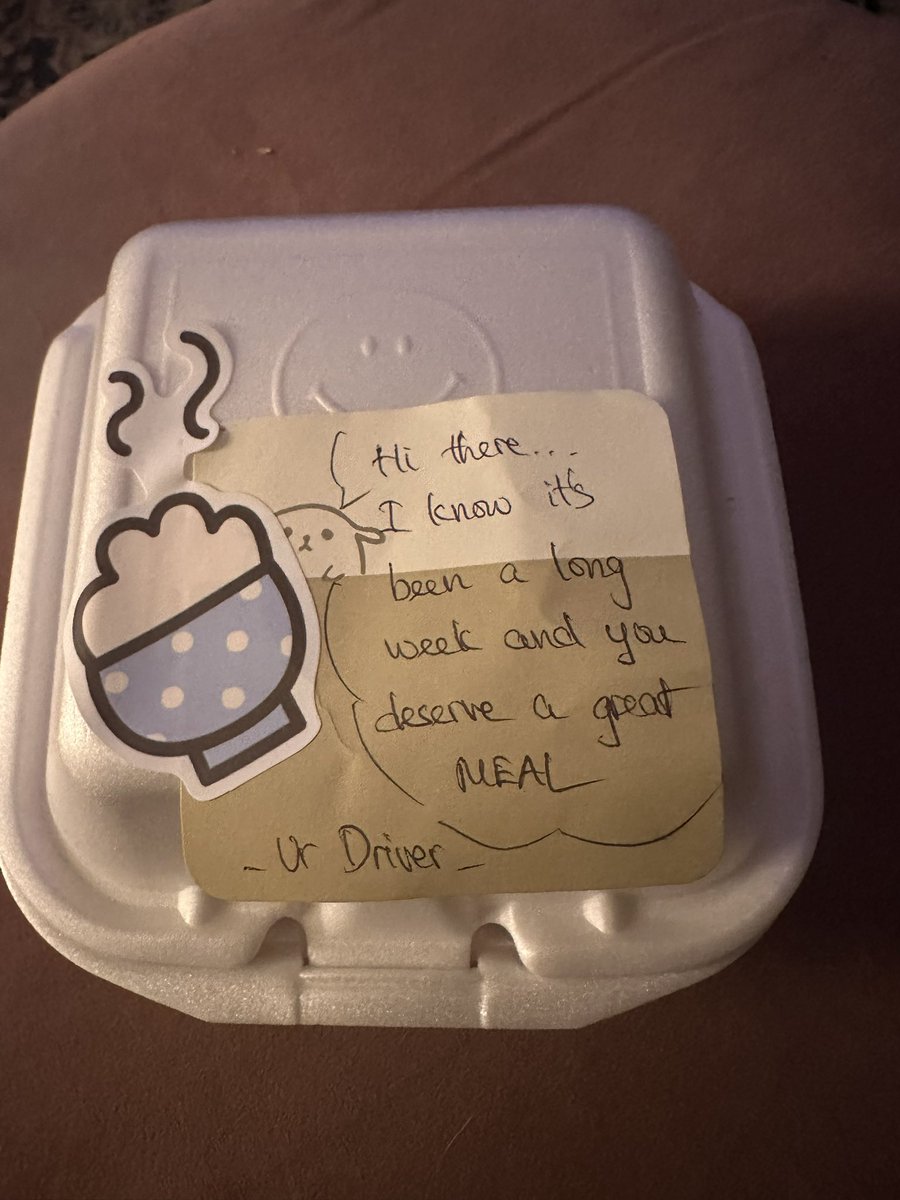 Hi there...
I know it's
been a long
week and you
deserve a great
MEAL
- Ur Driver -